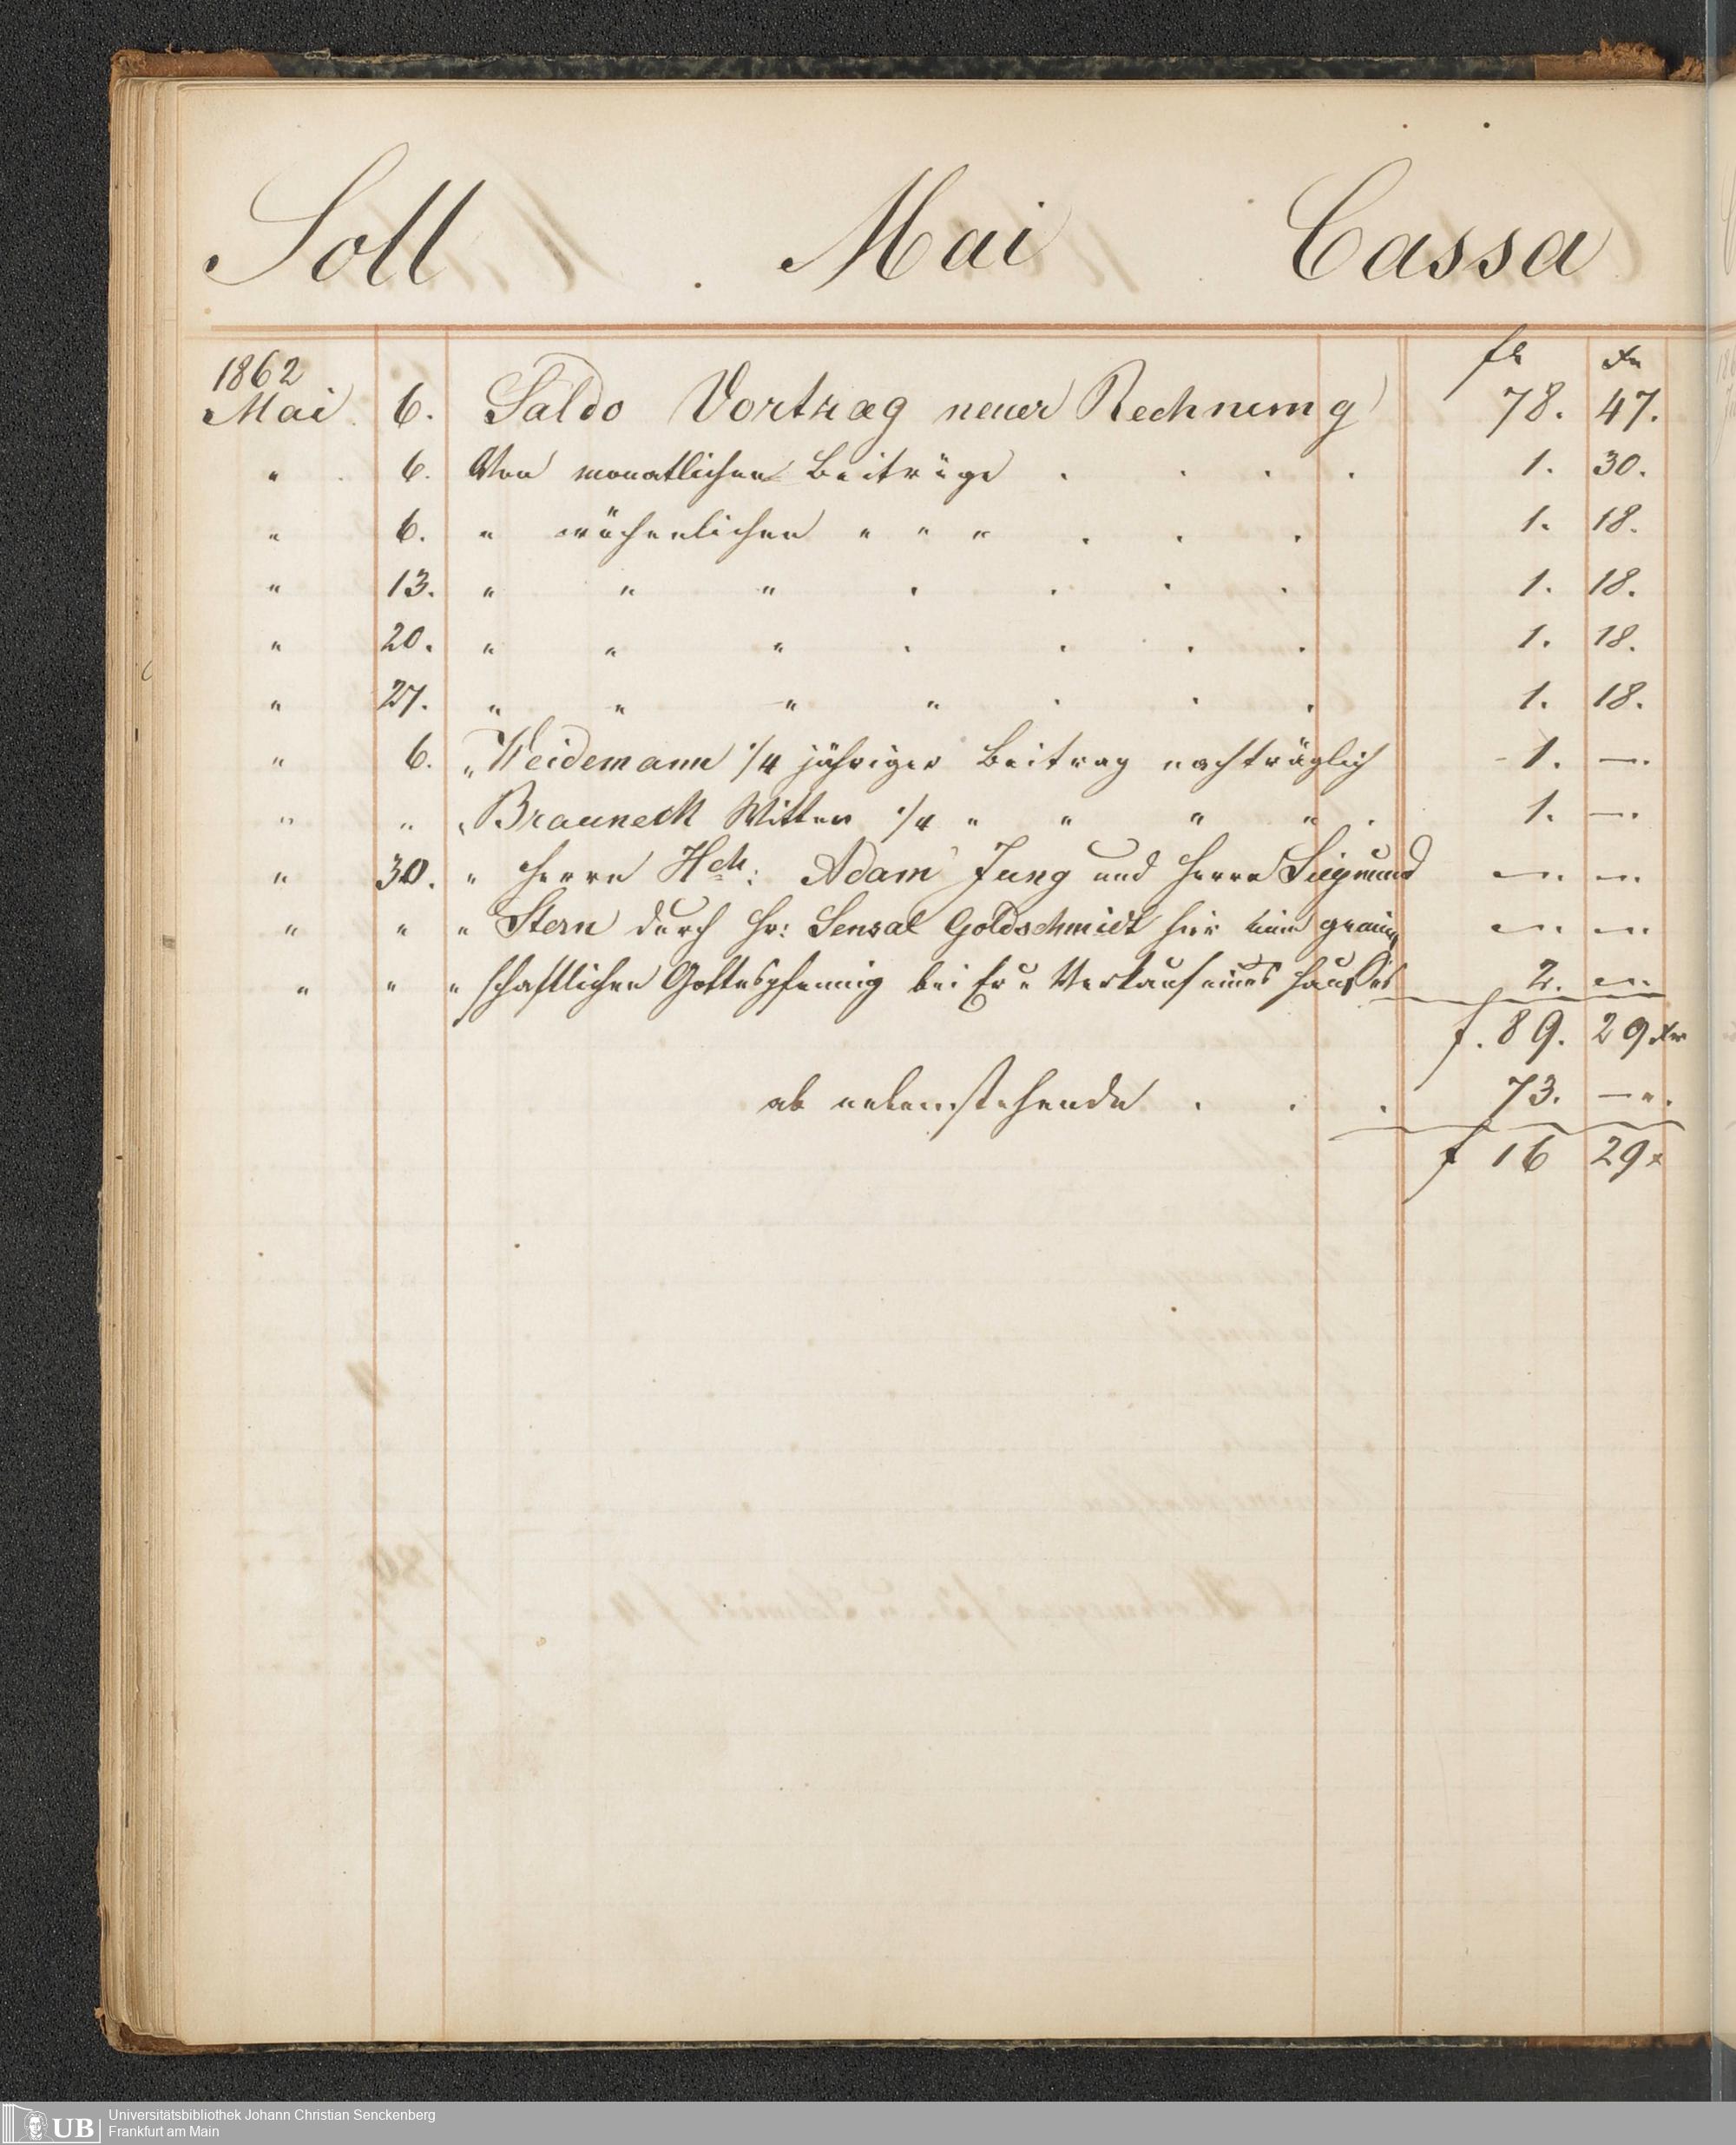 Soll Mai Cassa
1862 fl xr
Mai 6. Saldo Vortrag neuer Rechnung 78. 47.
" 6. Von monatlichen Beiträge . . . . 1. 30.
" 6. " wöchenlichen " " " . . . 1. 18.
" 13. " " " . . . . 1. 18.
" 20. " " " . . . . 1. 18.
" 27. " " " " . . . 1. 18.
" 6. " Weidemann 1/4 jähriger Beitrag nachträglich 1. —.
" " " Brauneck Wittwe 1/4 " " " " . 1. —.
" 30. " Herrn Hch: Adam Jung und Herrn Siegmund —". —".
" " " Stern durch Hr: Sensal Goldschmidt hier einen gemein —". —".
" " " schaftlichen Gottespfennig bei u Verkauf eines Hauses 2. —".
f. 89. 29 xr
ab nebenstehende . . . 73. —".
f 16 29 x
UB Universitätsbibliothek Johann Christian Senckenberg
Frankfurt am Main